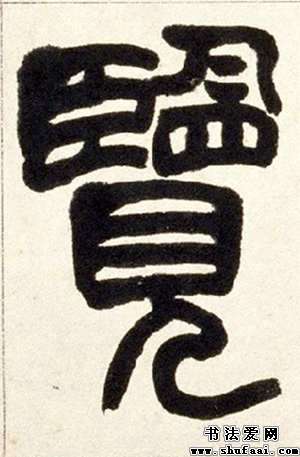 覽
书法爱网
www.shufaai.com